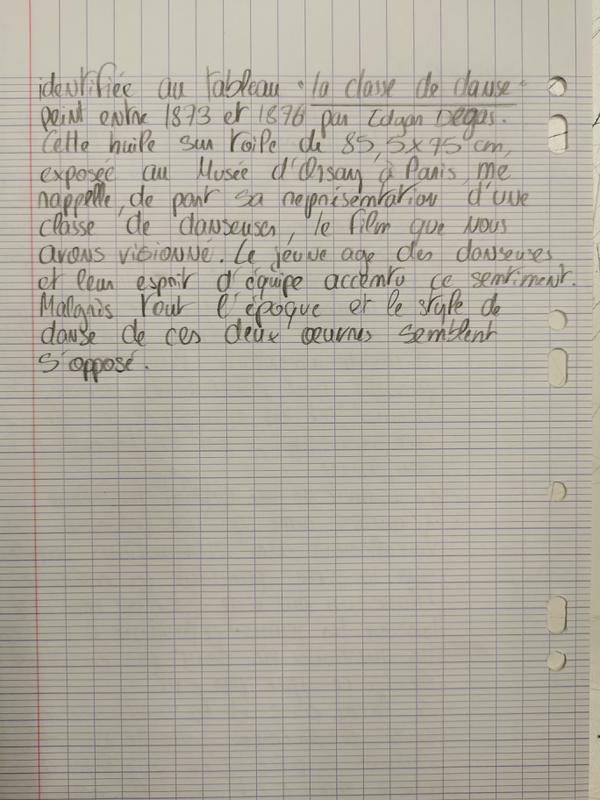 identifiée au tableau "la classe de danse"
peint entre 1873 et 1876 par Edgar Degas.
Cette huile sur toile de 85,5x75 cm,
exposée au Musée d'Orsay à Paris, me
rappelle, de part sa représentation d'une
classe de danseuses, le film que nous
avons visionné. Le jeune age des danseuses
et leur esprit d'équipe accentu ce sentiment.
Malgrés tout l'époque et le style de
danse de ces deux œuvres semblent
s'opposé.